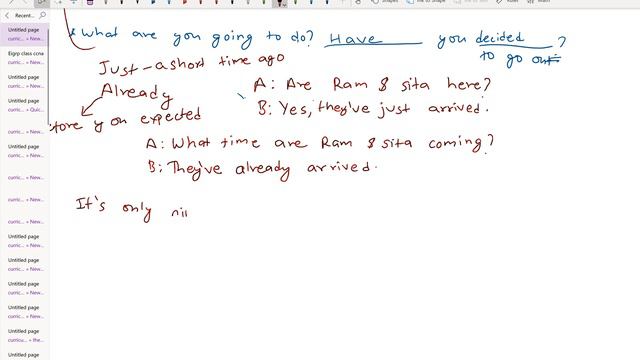 Recent...
Untitled page
curric... » New...
Eigrp class ccna
curric... » New...
Untitled page
curric... » New...
Untitled page
curric... » Quic...
curric... » New...
Untitled page
curric... » New...
curric... » New...
curric... » New...
curric... » New...
Untitled page
curric... » New...
Untitled page
curric... » New...
Untitled page
curric... » New...
Untitled page
curric... » New...
Untitled page
curricu... » the...
Untitled page
What are you going to do? Have you decided ?
to go out
Just - a short time ago
A: Are Ram & sita here?
Already
B: Yes, they've just arrived.
you expected
A: What time are Ram & sita coming?
B: They've already arrived.
It's only